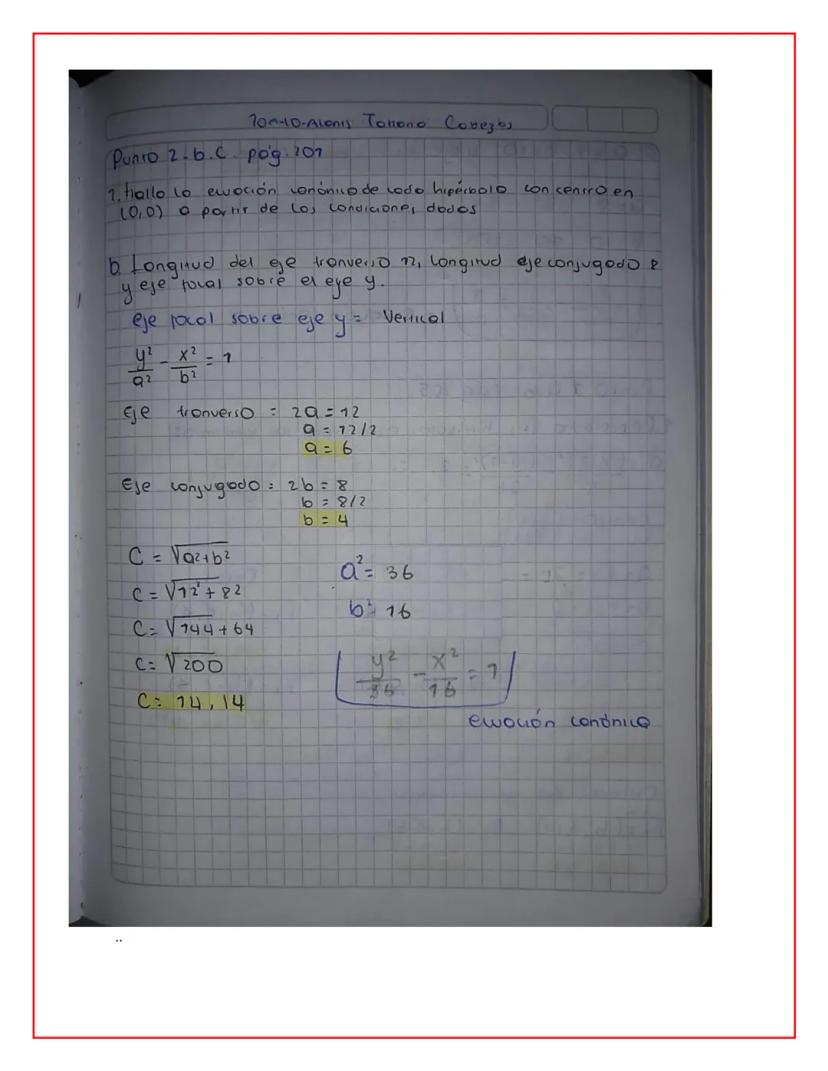 10n-10-Alonis Tonono Cabezas
Punto 2. b. C. pág. 201
1. Halla la ecuación canónica de cada hipérbola con centro en
(0,0) a partir de las condiciones dadas
b. Longitud del eje tranverso 12, longitud eje conjugado 8
y eje focal sobre el eje y.
eje focal sobre eje y = Vertical
y²/a² - x²/b² = 1
Eje tranverso = 2a = 12
a = 12/2
a = 6
Eje conjugado = 2b = 8
b = 8/2
b = 4
C = √a²+b²
C = √12² + 8²
C = √144 + 64
C = √200
C = 14,14
a² = 36
b² = 16
y²/36 - x²/16 = 1
ecuación canónica
..